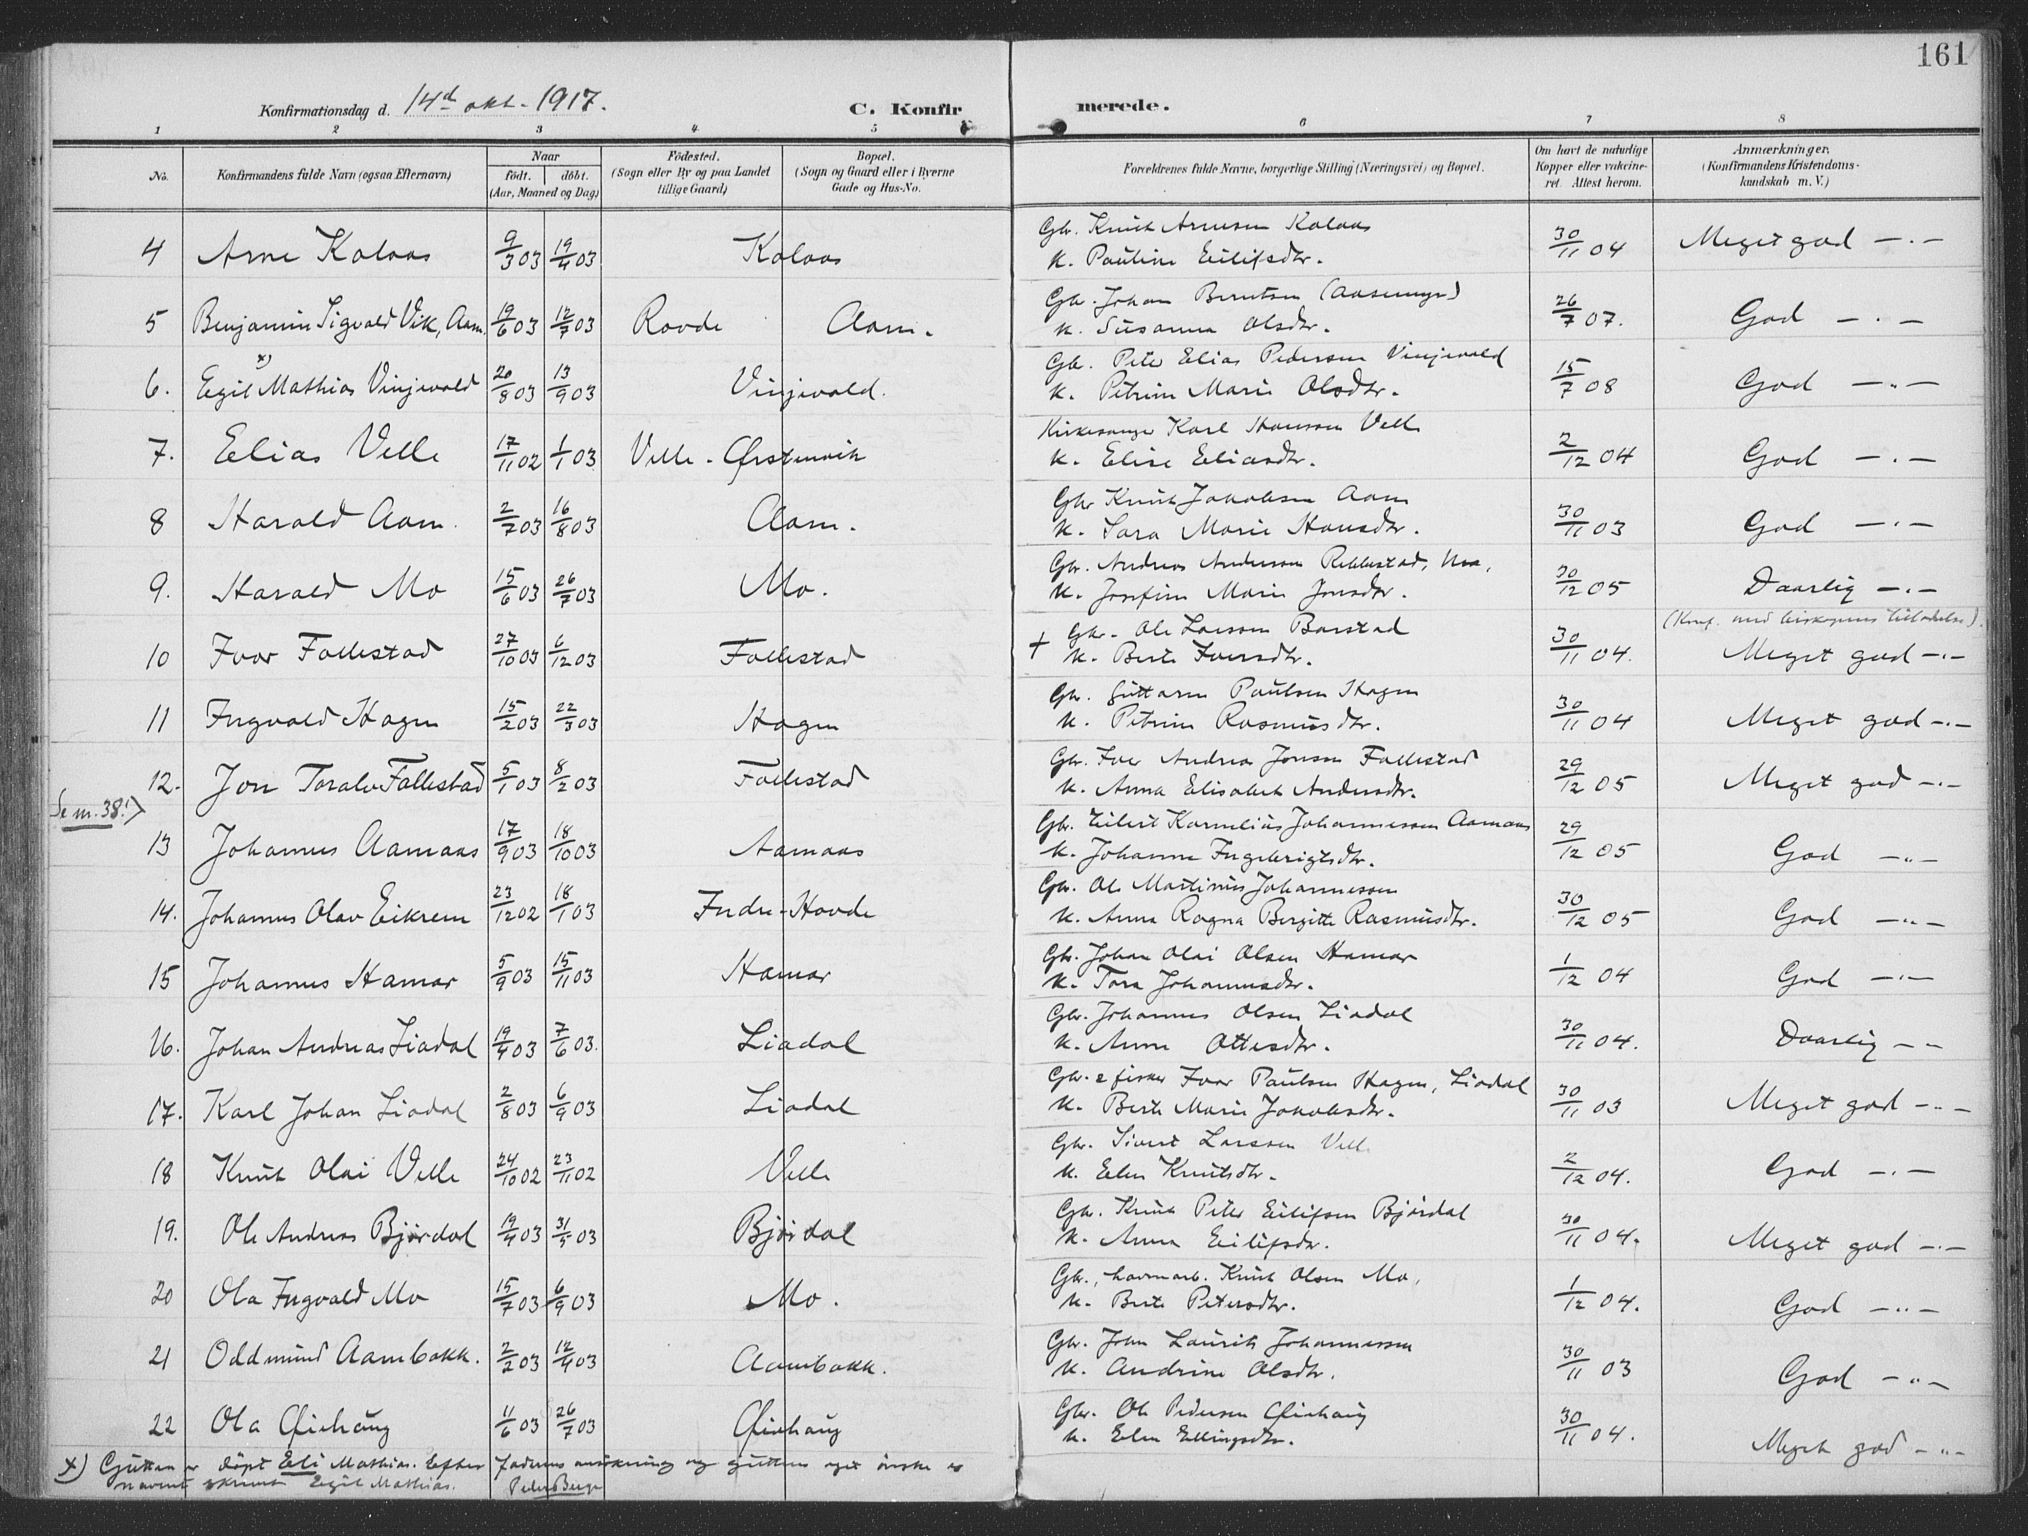 161
Konfirmationsdag d. 14d okt. 1917.
C. Konfirmerede.
1 2 3 4 5 6 7 8
No.
Konfirmandens fulde Navn (ogsaa Efternavn)
Naar
født. døbt.
(Aar, Maaned og Dag)
Fødested.
(Sogn eller By og paa Landet
tillige Gaard)
Bopæl.
(Sogn og Gaard eller i Byerne
Gade og Hus-No.
Forældrenes fulde Navne, borgerlige Stilling (Næringsvei) og Bopæl.
Om havt de naturlige
Kopper eller vakcine-
ret. Attest herom.
Anmærkninger.
(Konfirmandens Kristendoms-
kundskab m. V.)
4 Arne Kolaas 9/3 03 19/4 03 Kolaas
Gbr. Knut Arnesen Kolaas
K. Pauline Eilifsdtr. 30/11 04 Meget god — . —
5 Benjamin Sigvald Vik, Aam. 19/6 03 12/7 03 Rovde Aam.
Gbr. Johan Berntsen (Aasemyr)
K. Susanna Olsdtr. 26/7 07. God — . —
x)
6. Egil Mathias Vinjevold 20/8 03 13/9 03 Vinjevold.
Gbr. Peter Elias Pedersen Vinjevold
K. Petrine Marie Olsdtr. 15/7 08 God — „ —
7. Elias Velle 17/11 02 1/1 03 Velle - Ørstenvik
Kirkesanger Karl Hanssen Velle
K. Elise Eliasdtr. 2/12 04 God — . —
8 Harald Aam. 2/7 03 16/8 03 Aam.
Gbr Knut Jakobsen Aam
K. Sara Marie Hansdtr. 30/11 03 God — . —
9. Harald Mo 15/6 03 26/7 03 Mo.
Gbr. Andreas Andersen Rekkestad, Mo,
K. Josefine Marie Jonsdtr. 30/12 05 Daarlig — . —
(Konf. med biskopens tilladelse).
10 Ivar Follestad 27/10 03 6/12 03 Follestad
+ Gbr. Ole Larsen Barstad
K. Berte Iversdtr. 30/11 04. Meget god — . —
11 Ingvald Hagen 15/2 03 22/3 03 Hagen
Gbr. Guttorm Paulsen Hagen
K. Petrine Rasmusdtr. 30/11 04 Meget god — . —
12. Jon Toralv Follestad 5/1 03 8/2 03 Follestad
Gbr. Iver Andreas Jonsen Follestad
K. Anna Elisabet Andersdtr. 29/12 05 Meget god — . —
Se nr. 38!)
13 Johannes Aamaas 17/9 03 18/10 03 Aamaas
Gbr. Eilert Kornelius Johannessen Aamaas
K. Johanne Ingebrigtsdtr. 29/12 05 God — „ —
14. Johannes Olav Eikrem 23/12 02 18/1 03 Indre-Hovde
Gbr. Ole Martinus Johannessen
K. Anna Ragna Bergitte Rasmusdtr. 30/12 05 God — „ —
15 Johannes Hamar 5/9 03 15/11 03 Hamar
Gbr. Johan Olai Olsen Hamar
K. Tora Johannesdtr. 1/12 04 God — . —
16. Johan Andreas Liadal 19/4 03 7/6 03. Liadal
Gbr. Johannes Olsen Liadal
K. Anne Ottesdtr. 30/11 04. Daarlig — „
17. Karl Johan Liadal 2/8 03 6/9 03 Liadal
Gbr. & fisker Ivar Paulsen Hagen, Liadal
K. Berte Marie Jakobsdtr. 30/11 03 Meget god — „ —
18 Knut Olai Velle 24/10 02 23/11 02 Velle
Gbr. Sivert Larssen Velle
K. Elen Knutsdtr. 2/12 04. God — . —
19. Ole Andreas Bjørdal 19/4 03 31/5 03 Bjørdal
Gbr. Knut Peter Eilifsen Bjørdal
K. Anna Eilifsdtr. 30/11 04. Meget god — . —
20 Ola Ingvald Mo 15/7 03 6/9 03 Mo.
Gbr., havnarb. Knut Olsen Mo,
K. Berte Petersdtr. 1/12 04. God — „ —
21 Oddmund Aambakk. 2/2 03 12/4 03 Aambakk.
Gbr. John Laurits Johannessen
K. Andrine Olsdtr. 30/11 03 God — „ —
22 Ola Øiehaug 11/6 03 26/7 03 Øiehaug
Gbr. Ole Pedersen Øiehaug
K. Elen Ellingsdtr. 30/11 04. Meget god — „ —
x) Gutten er døpt Eli Mathias. Efter faderens ansøkning og guttens eget ønske er
navnet skrevet Egil Mathias. Peder Berge